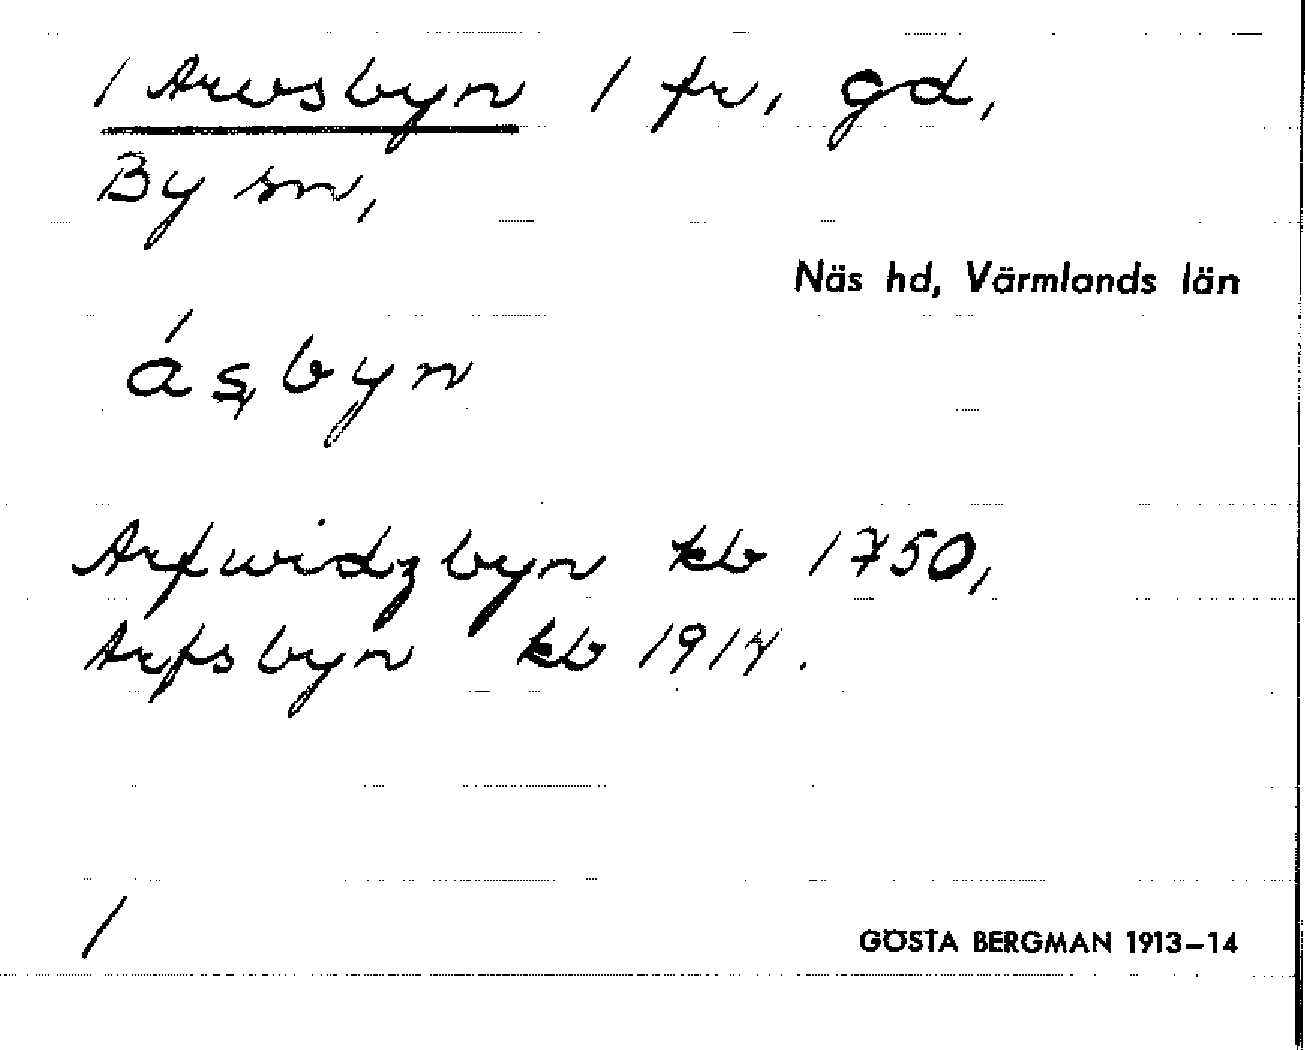 / Arvsbyn / fr, gd,
By sn,
Näs hd, Värmlands län
ás̨byn
Arfwidzbyn kb 1750,
Arfsbyn kb 1914.
/
GÖSTA BERGMAN 1913–14